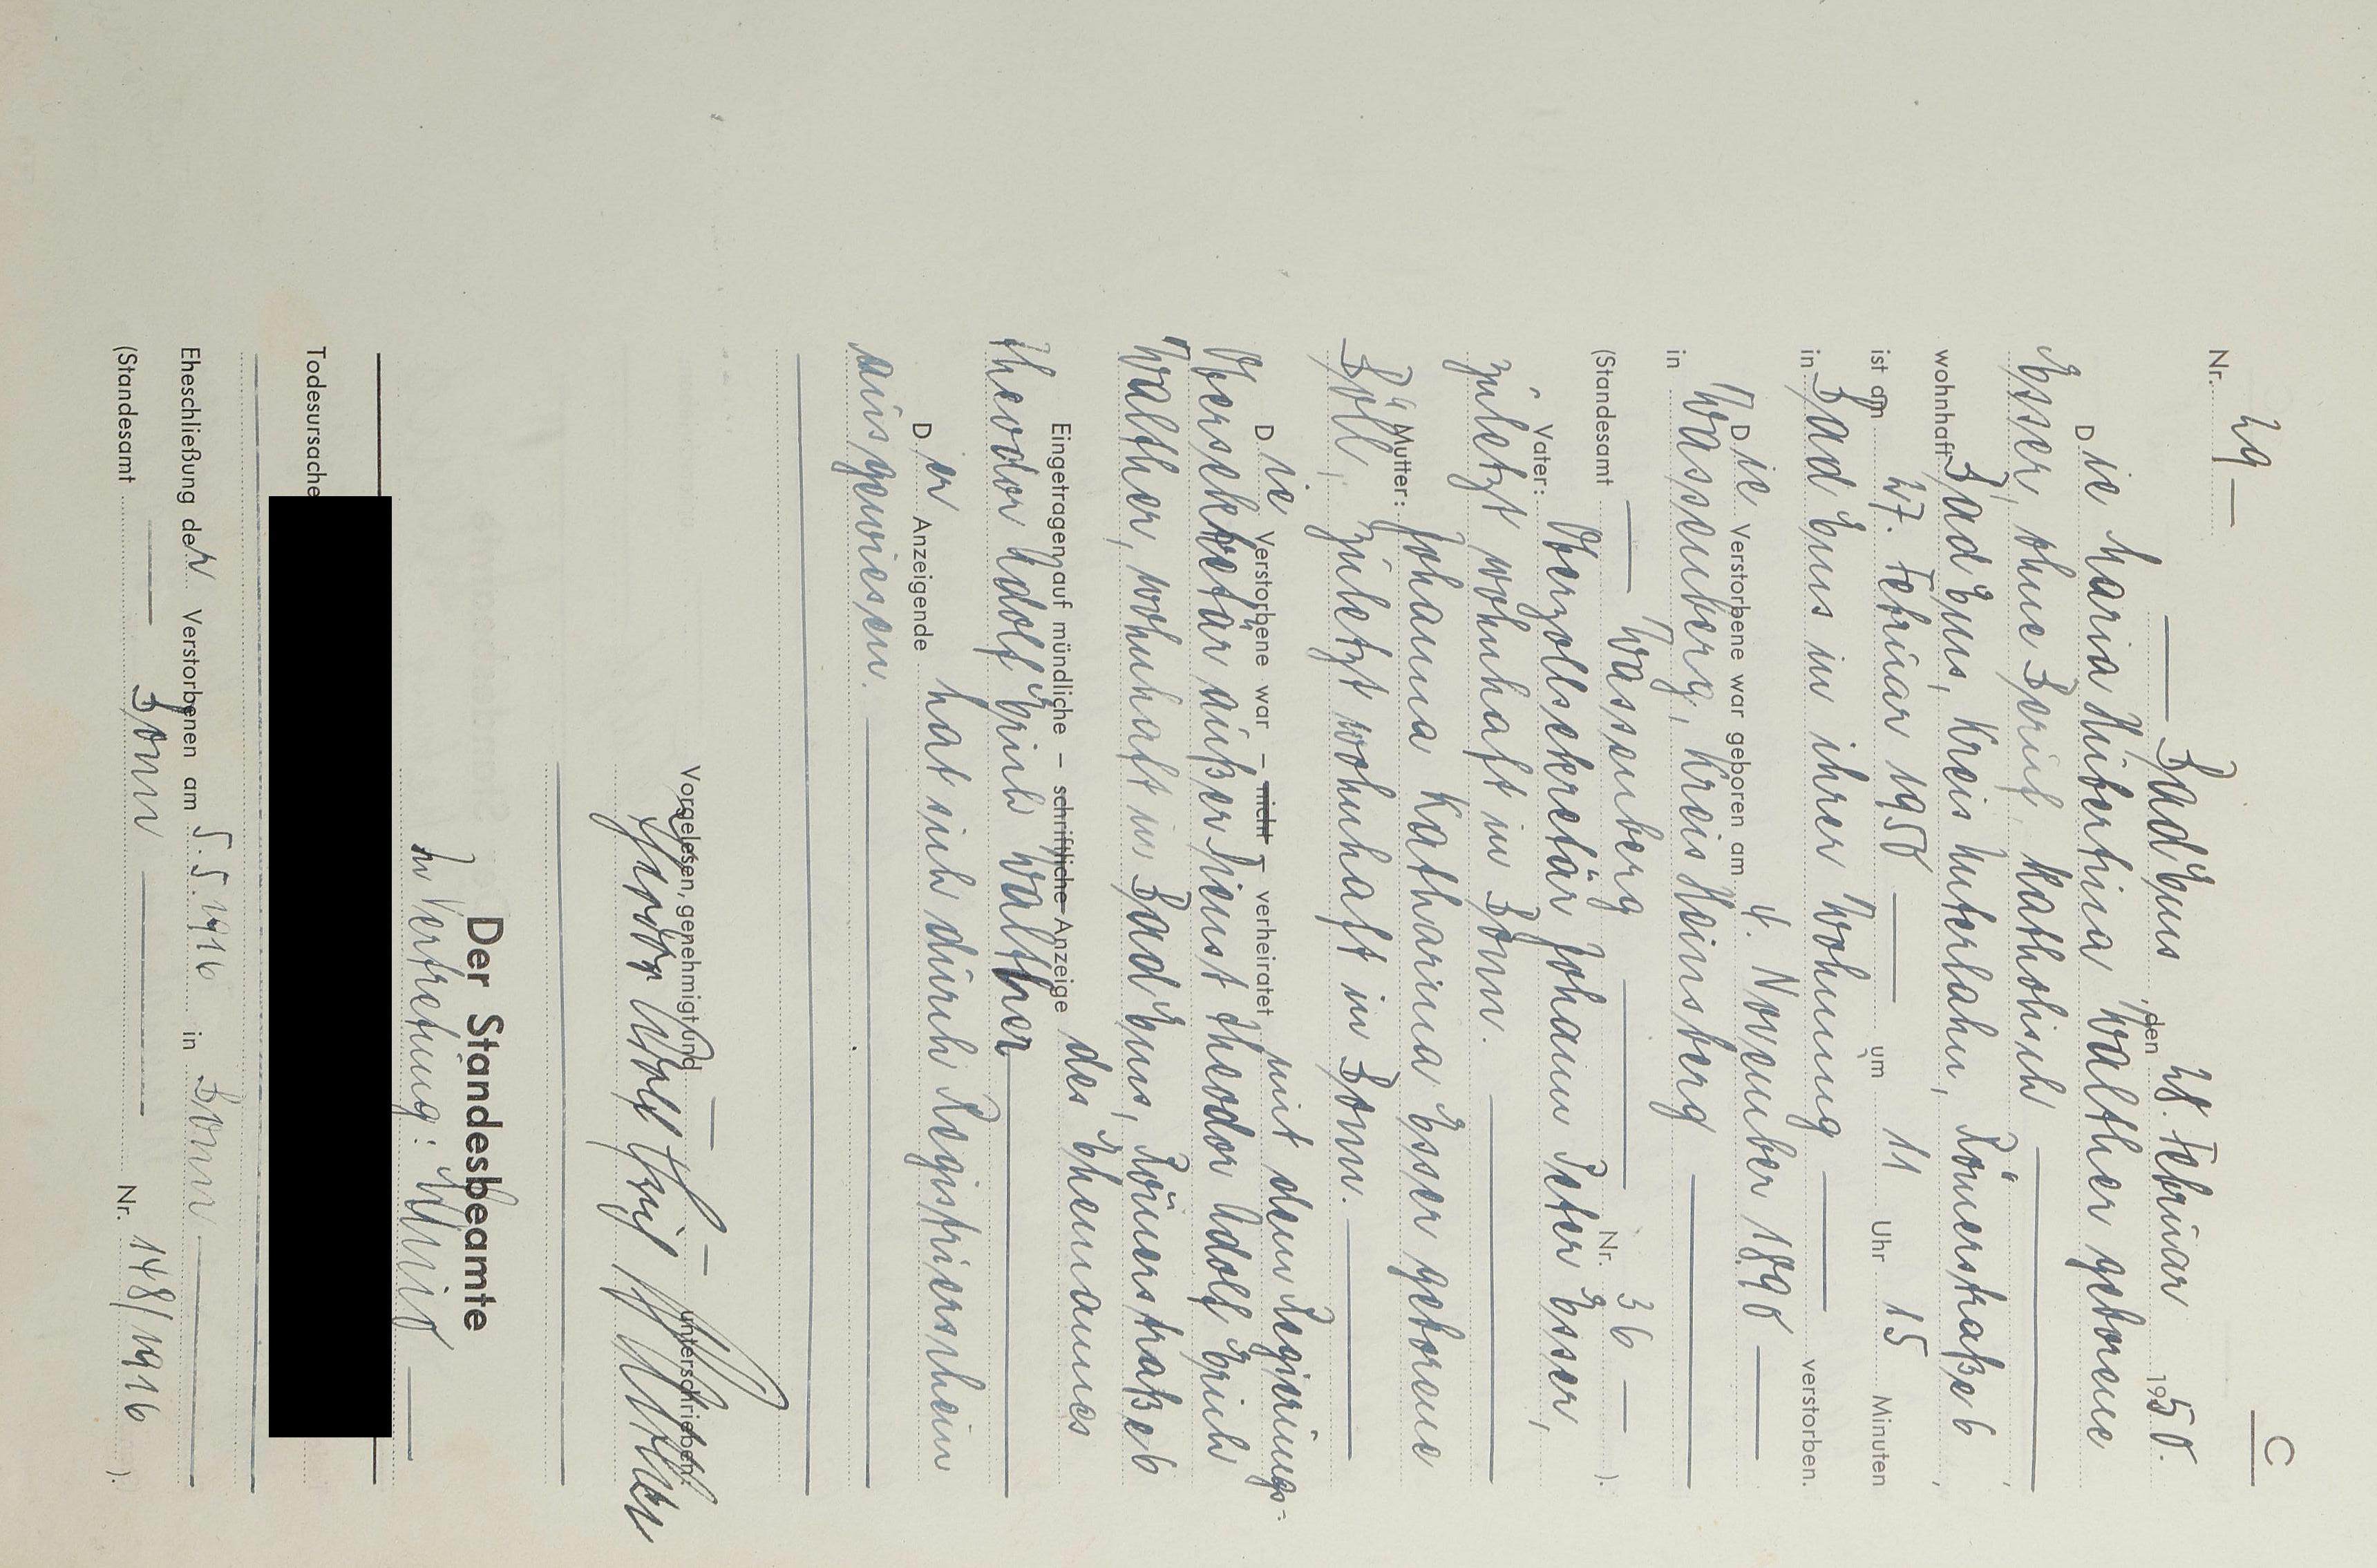 C
Nr. 29
Bad Ems, den 28. Februar 1950.
Die Maria Hubertina Walther geborene
Esser, ohne Beruf, katholisch
wohnhaft Bad Ems, Kreis Unterlahn, Römerstraße 6,
ist am 27. Februar 1950 um 11 Uhr 15 Minuten
in Bad Ems in ihrer Wohnung verstorben.
Die Verstorbene war geboren am 4. November 1890
in Wassenberg, Kreis Heinsberg
(Standesamt Wassenberg Nr. 36 ).
Vater: Oberzollsekretär Johann Peter Esser,
zuletzt wohnhaft in Bonn.
Mutter: Johanna Katharina Esser geborene
Böll, zuletzt wohnhaft in Bonn.
Die Verstorbene war – nicht – verheiratet mit dem Regierungs=
Obersekretär außer Dienst Theodor Adolf Erich
Walther, wohnhaft in Bad Ems, Römerstraße 6
Eingetragen auf mündliche – schriftliche – Anzeige des Ehemannes
Theodor Adolf Erich Walther
Der Anzeigende hat sich durch Registrierschein
ausgewiesen.
Vorgelesen, genehmigt und unterschrieben:
Theodor Adolf Erich Walther
Der Standesbeamte
In Vertretung:
Todesursache
Eheschließung der Verstorbenen am 5.5.1916 in Bonn
(Standesamt Bonn Nr. 148/1916 ).